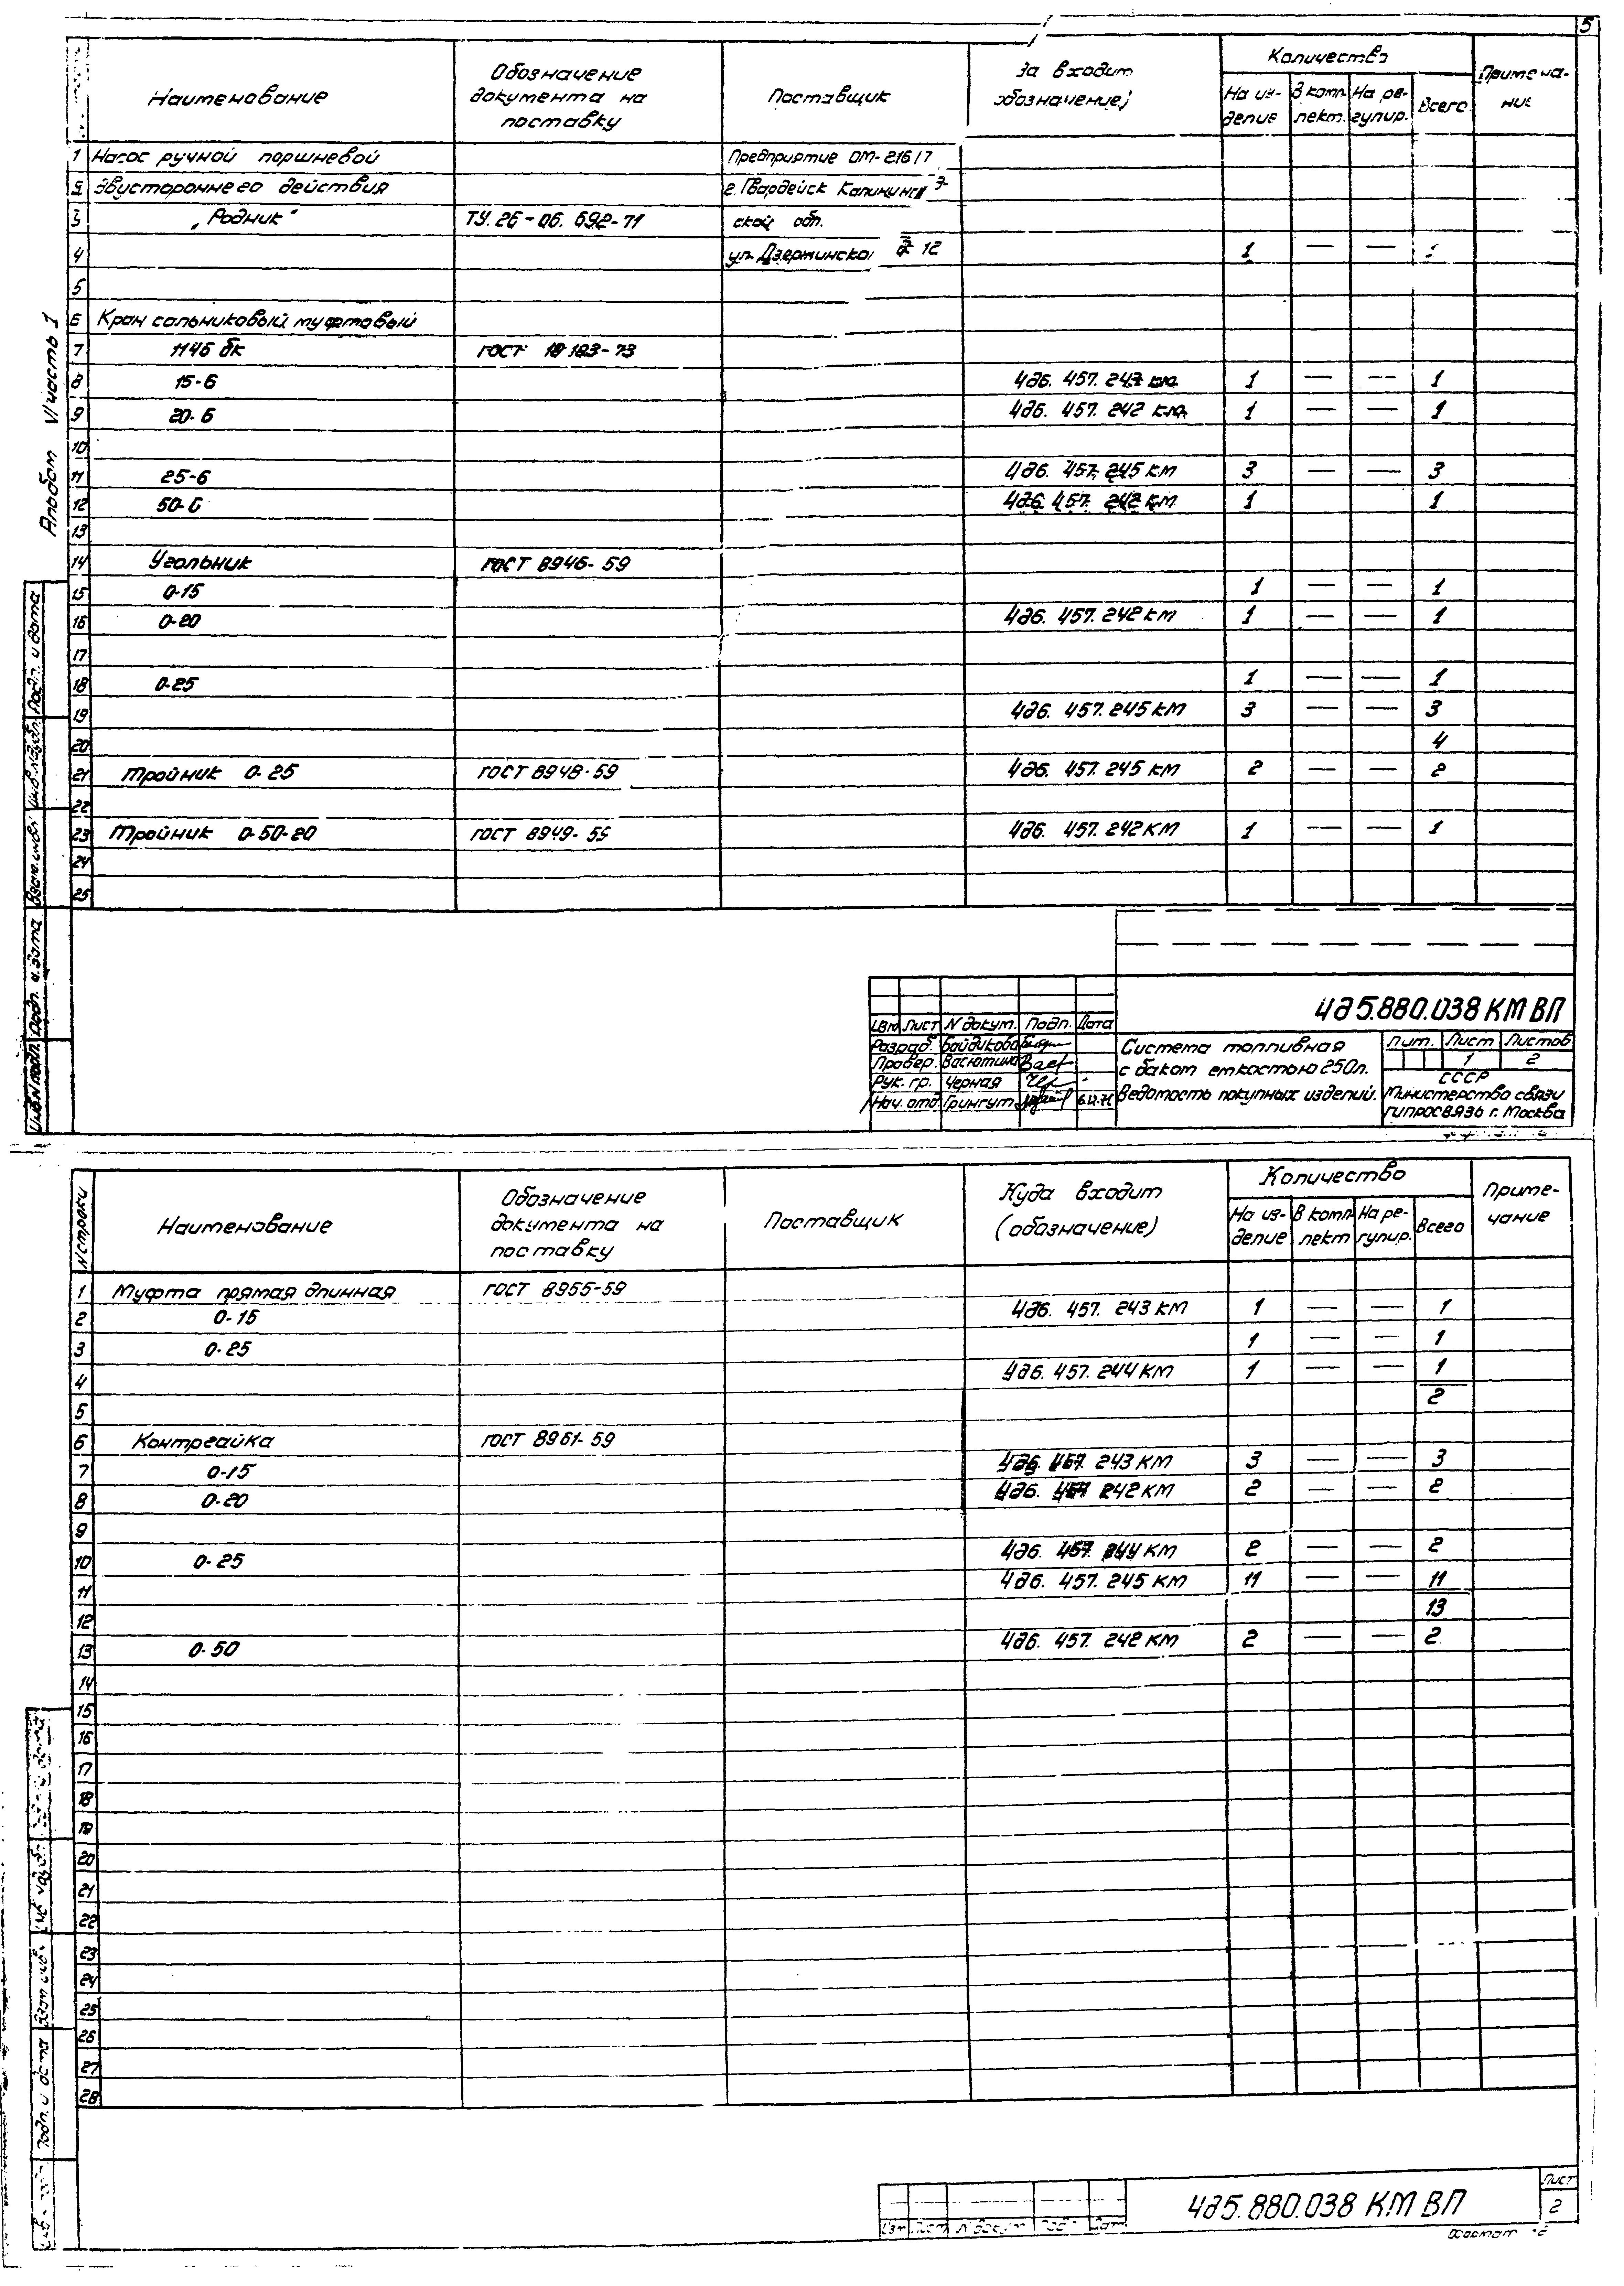 5
Альбом VI часть 1
Наименование
Обозначение документа на поставку
Поставщик
входит
Количество
На из-делие
В комп-лект.
На ре-гулир.
Всего
1 Насос ручной поршневой Предприятие ОМ-216/7
2 двустороннего действия г. Гвардейск Калининг
3 „Родник“ ТУ. 26-06. 692-71 ской обл.
4 ул. 12 1 — —
5
6 Кран сальниковый муфтовый
7 11Ч6 бк ГОСТ
8 15-6 4д6. 457. 1 — — 1
9 20-6 4д6. 457. 242 км 1 — — 1
10
11 25-6 4д6. 457. 245 км 3 — — 3
12 50-6 4д6. 457. 242 км 1 — — 1
13
14 Угольник ГОСТ 8946-59
15 0-15 1 — — 1
16 0-20 4д6. 457. 242 км 1 — — 1
17
18 0-25 1 — — 1
19 4д6. 457. 245 км 3 — — 3
20 4
21 Тройник 0-25 ГОСТ 8948-59 4д6. 457. 245 км 2 — — 2
22
23 Тройник 0-50-20 ГОСТ 8949-59 4д6. 457. 242 км 1 — — 1
24
25
Подп. и дата
Взам. инв
Подп. и дата
Инв.№ подл.
4д5.880.038 КМ ВП
Изм Лист N докум. Подп. Дата
Разраб. Байдикова
Провер. Васютина
Рук. гр. Черная
Нач. отд. Грингут
Система топливная
с баком емкостью 250л.
Ведомость покупных изделий.
Лит. Лист Листов
1 2
СССР
Министерство связи
гипросвязь г. Москва
N строки
Наименование
Обозначение документа на поставку
Поставщик
Куда входит (обозначение)
Количество
На из-делие
В комп-лект
На ре-гулир.
Всего
Приме-чание
1 Муфта прямая длинная ГОСТ 8955-59
2 0-15 4д6. 457. 243 км 1 — — 1
3 0-25 1 — — 1
4 4д6. 457. 244 км 1 — — 1
5 2
6 Контргайка ГОСТ 8961-59
7 0-15 4д6. 457. 243 км 3 — — 3
8 0-20 4д6. 457. 242 км 2 — — 2
9
10 0-25 4д6. 457. 244 км 2 — — 2
11 4д6. 457. 245 км 11 — — 11
12 13
13 0-50 4д6. 457. 242 км 2 — — 2
14
15
16
17
18
19
20
21
22
23
24
25
26
27
28
Подп. и дата
4д5.880.038 КМ ВП
Лист
2
Изм Лист N докум
Формат